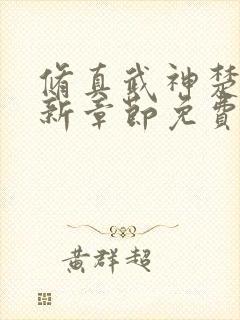 脩真武神楚
新章節免費
黃群超